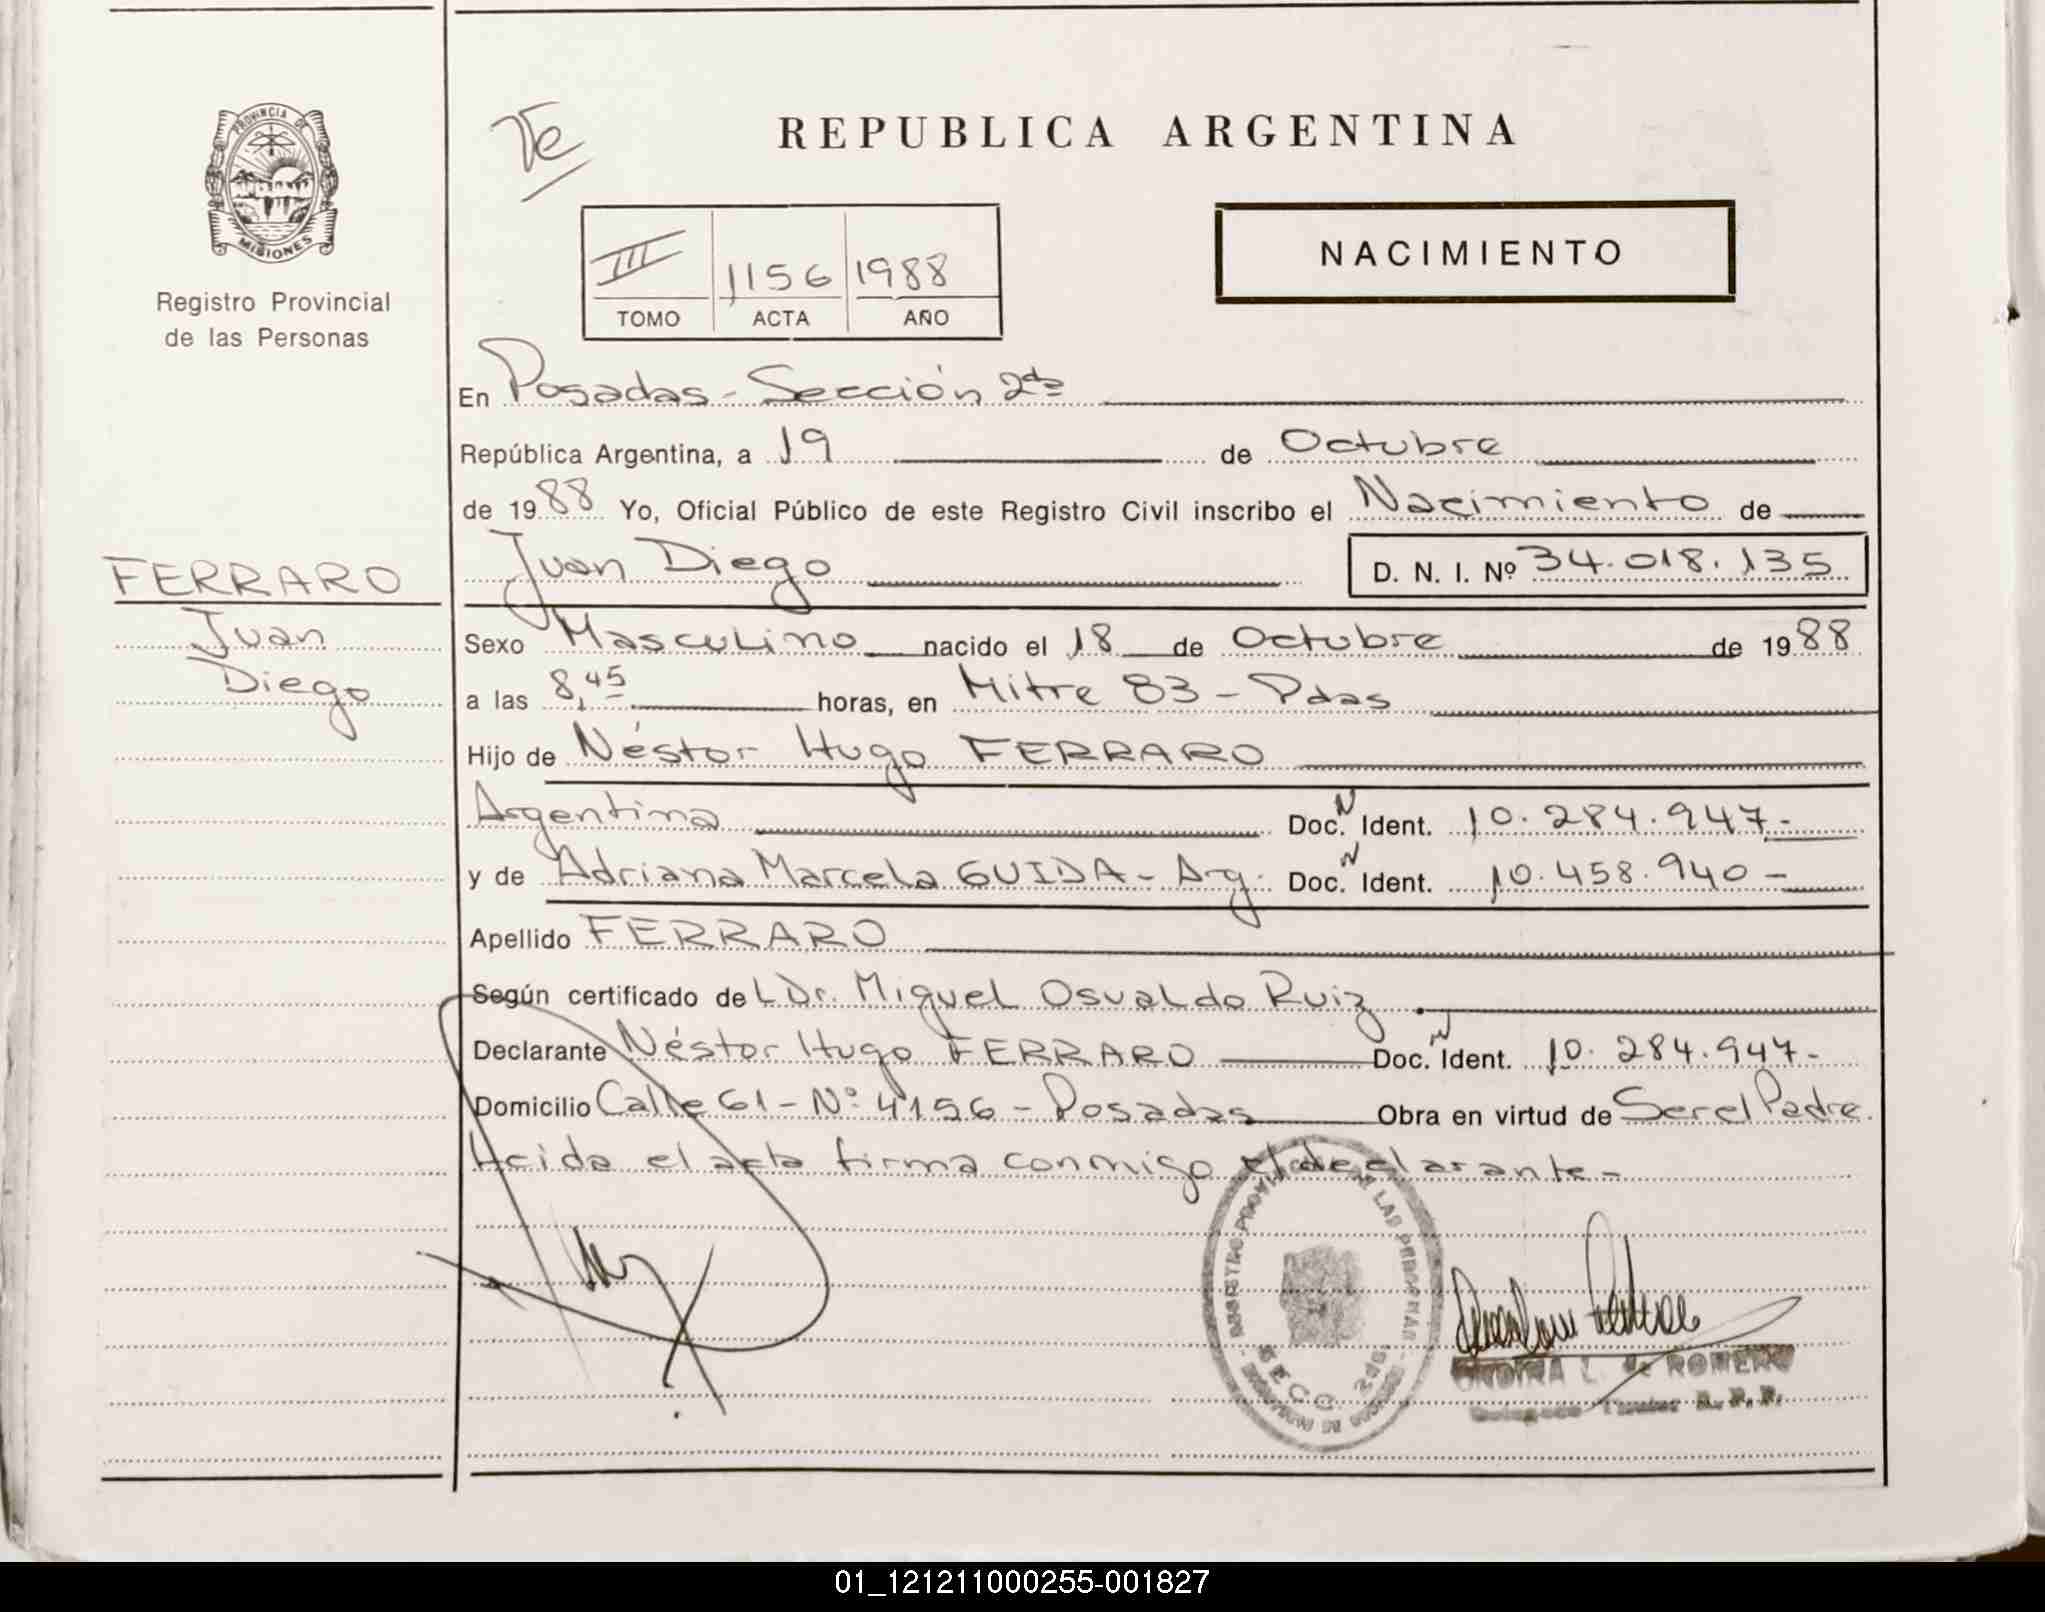 PROVINCIA DE
MISIONES
Registro Provincial
de las Personas
FERRARO
Juan
Diego
REPUBLICA ARGENTINA
NACIMIENTO
III 1156 1988
TOMO ACTA AÑO
En Posadas - Sección 2da
República Argentina, a 19 de Octubre
de 1988 Yo, Oficial Público de este Registro Civil inscribo el Nacimiento de
Juan Diego D. N. I. Nº 34.018.135
Sexo Masculino nacido el 18 de Octubre de 1988
a las 8,45 horas, en Mitre 83 - Pdas
Hijo de Néstor Hugo FERRARO
Argentina Doc. N Ident. 10.284.947.-
y de Adriana Marcela GUIDA - Arg. Doc. N Ident. 10.458.940 -
Apellido FERRARO
Según certificado del Dr. Miguel Osvaldo Ruiz
Declarante Néstor Hugo FERRARO Doc. N Ident. 10.284.947.-
Domicilio Calle 61 - Nº 4156 - Posadas Obra en virtud de Ser el Padre.
Leida el acta firma conmigo el declarante.-
LAS PERSONAS
SECC. 2da.
ONDINA L. de ROMERO
Titular R. P. P.
01_121211000255-001827